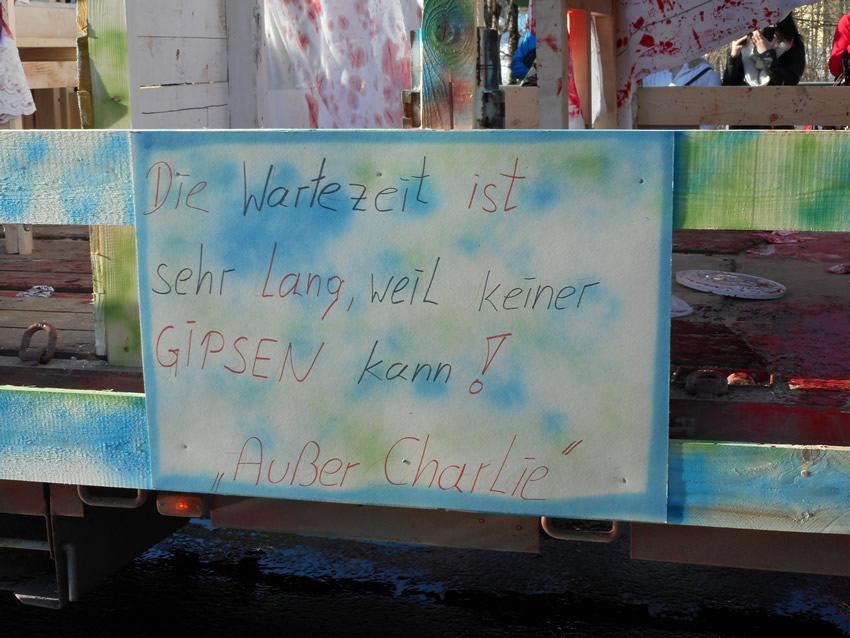 Die Wartezeit ist
sehr Lang, weil keiner
GIPSEN kann!
„Außer Charlie“